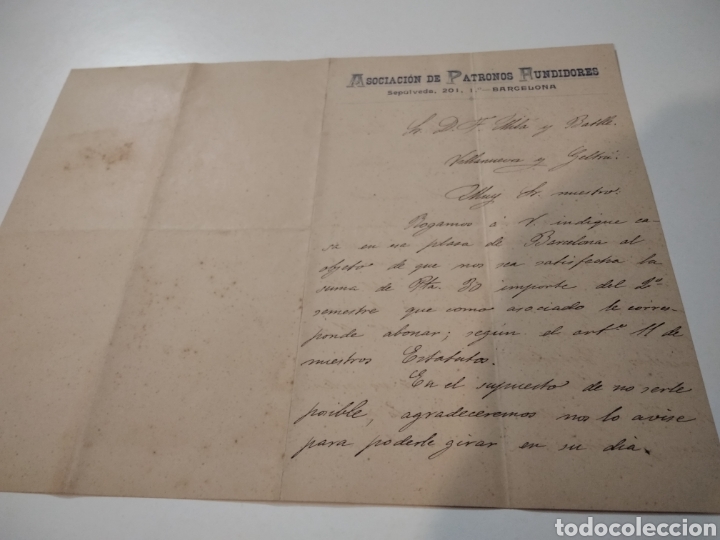 ASOCIACIÓN DE PATRONOS FUNDIDORES
Sepúlveda, 201, 1.º-BARCELONA
Sr. D. F. y Batlle
Villanueva y Geltrú.
Muy Sr. nuestro:
Rogamos á V. indique ca-
sa en esa plaza de Barcelona al
objeto de que nos sea satisfecha la
suma de Pta. 30 importe del 2º
semestre que como asociado le corres-
ponde abonar; según el artº 11 de
nuestros Estatutos.
En el supuesto de no serle
posible, agradeceremos nos lo avise
para poderle girar en su dia.
todocoleccion